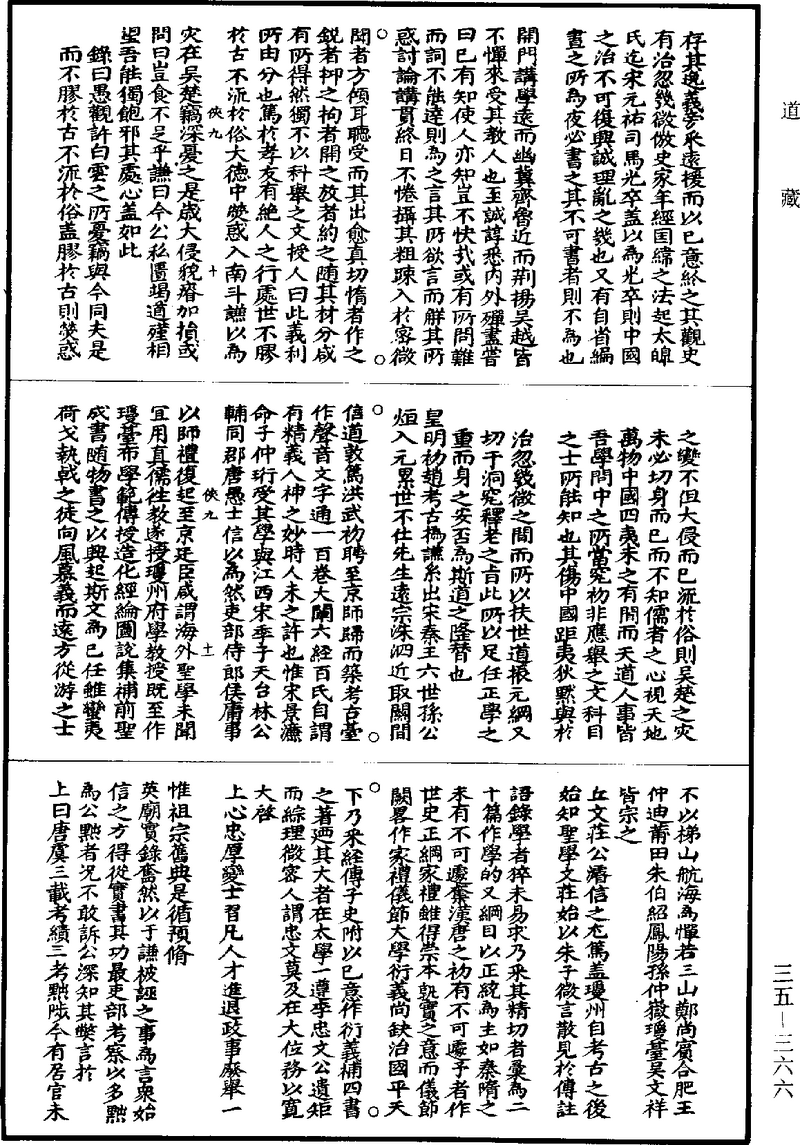 道藏
存其逸義旁采遠援而以己意終之其觀史
有治忽幾微倣史家年經囯緯之法起太皥
氏迄宋元祐司馬光卒盖以為光卒則中國
之治不可復興誠理亂之幾也又有自省編
晝之所為夜必書之其不可書者則不為也
開門講學遠而幽冀齊魯近而荆揚吳越皆
不憚來受其教人也至誠諄悉内外殫盡嘗
曰已有知使人亦知豈不快㢤或有所問難
而詞不能達則為之言其所欲言而觧其所
惑討論講貫終日不倦攝其粗踈入於宻微
聞者方傾耳聽受而其出愈真切惰者作之
銳者抑之拘者開之放者約之随其材分咸
有所得然獨不以科舉之文授人曰此義利
所由分也篤於孝友有絶人之行處世不膠
於古不㳅於俗大德中熒惑入南斗謙以為
俠九
十
灾在吳楚竊深憂之是歲大侵貌瘠加損或
問曰豈食不足乎謙曰今公私匱竭道殣相
望吾能獨飽邪其處心盖如此
錄曰愚觀許白雲之所憂竊與今同夫是
而不膠於古不㳅於俗盖膠於古則熒惑
之變不但大侵而已㳅於俗則吳楚之灾
未必切身而已而不知儒者之心視天地
萬物中國四夷未之有間而天道人事皆
吾學問中之所當究初非應舉之文科目
之士所能知也其傷中國距夷狄黙與於
治忽幾微之間而所以扶世道振元綱又
切于洞究釋老之言此所以足任正學之
重而身之安否為斯道之隆替也
皇明初趙考古撝謙系出宋秦王六世孫公
烜入元累世不仕先生遠宗洙泗近取關閩
信道敦篤洪武初聘至京師歸而築考古臺
作聲音文字通一百巻大闡六經百氏自謂
有精義入神之妙時人未之許也惟宋景濂
命子仲珩受其學與江西宋季子天台林公
輔同郡唐愚士信以為然吏部侍郎侯庸事
俠九
十一
以師禮復起至京廷臣咸謂海外聖學未聞
宜用真儒徃教遂授瓊州府學教授既至作
瓊臺布學範傳授造化經綸圖説集補前聖
成書随物書之以興起斯文為已任雖蠻夷
荷戈執戟之徒向風慕義而遠方從游之士
不以梯山航海為憚若三山鄭尚賔合肥王
仲迪莆田朱伯紹鳳陽孫仲嶽瓊臺吳文祥
皆宗之
丘文荘公濬信之尤篤盖瓊州自考古之後
始知聖學文荘始以朱子微言散見於傳註
語錄學者猝未易求乃采其精切者彙為二
十篇作學的又綱目以正統為主如秦隋之
末有不可遽奪漢唐之初有不可遽予者作
世史正綱家禮雖得崇本敦實之意而儀節
闕畧作家禮儀節大學衍義尚缺治國平天
下乃采經傳子史附以已意作衍義補四書
之著廼其大者在太學一遵李忠文公遺矩
而綜理微宻人謂忠文莫及在大位務以寛
大啓
上心忠厚變士習凡人才進退政事廢舉一
惟祖宗舊典是循預脩
英廟實錄奮然以于謙被誣之事為言衆始
信之方得從實書其功最吏部考察以多黜
為公黙者況不敢訴公深知其獘言於
上曰唐虞三載考績三考黜陟今有居官未
三五—三六六